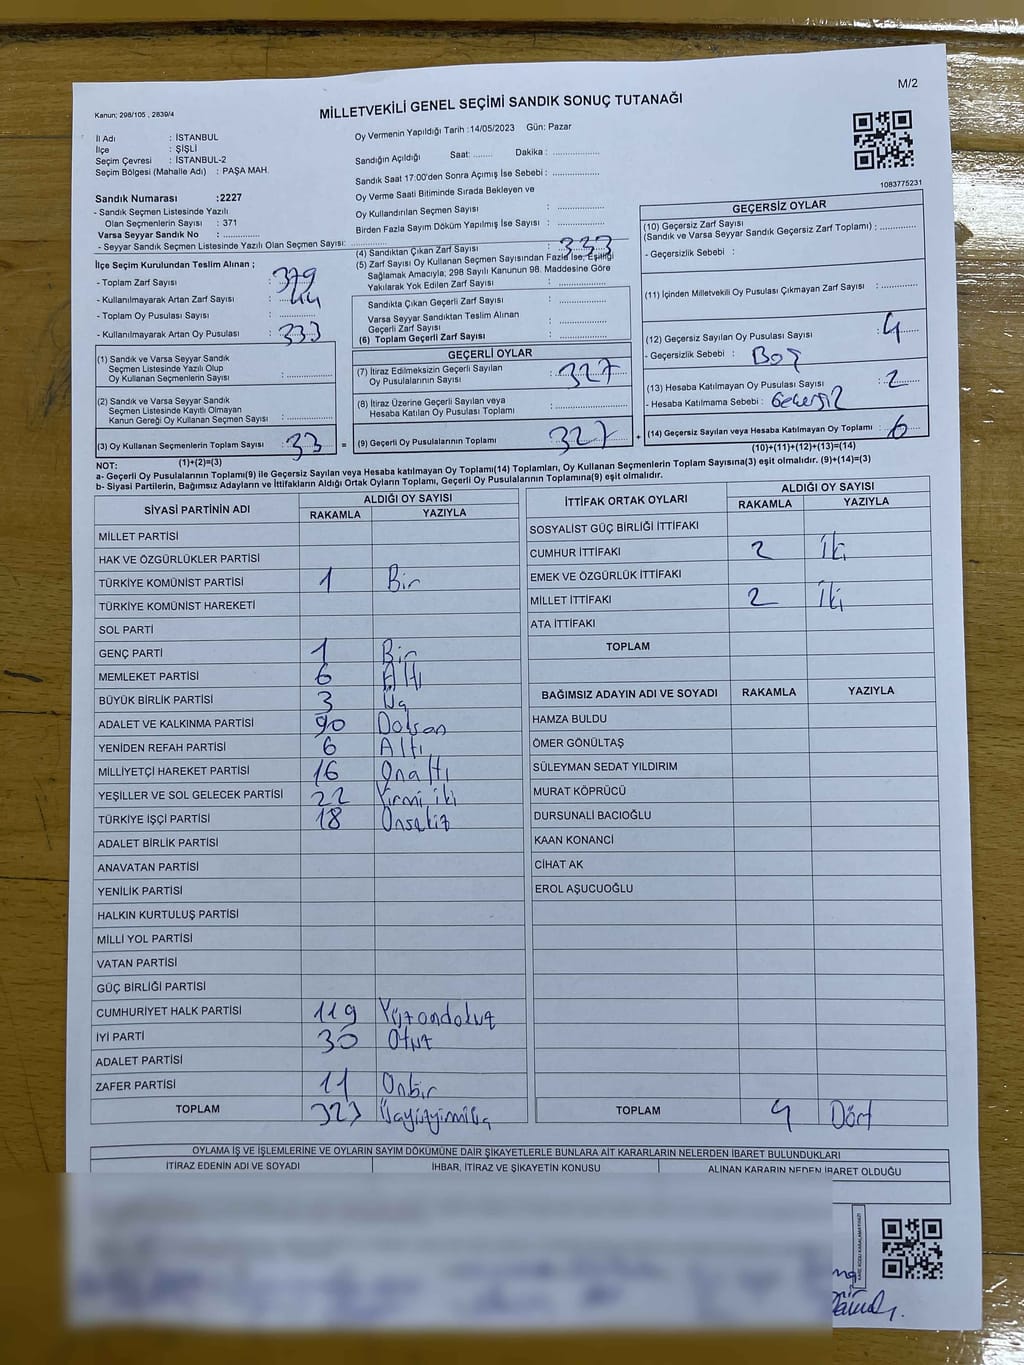 M/2
Kanun: 298/105 , 2839/4
MİLLETVEKİLİ GENEL SEÇİMİ SANDIK SONUÇ TUTANAĞI
İl Adı : İSTANBUL
İlçe : ŞİŞLİ
Seçim Çevresi : İSTANBUL-2
Seçim Bölgesi (Mahalle Adı) : PAŞA MAH.
Sandık Numarası :2227
- Sandık Seçmen Listesinde Yazılı
Olan Seçmenlerin Sayısı : 371
Varsa Seyyar Sandık No : ................
- Seyyar Sandık Seçmen Listesinde Yazılı Olan Seçmen Sayısı: ................
Oy Vermenin Yapıldığı Tarih :14/05/2023 Gün: Pazar
Sandığın Açıldığı Saat: ....... Dakika : ................
Sandık Saat 17:00'den Sonra Açımış İse Sebebi : ................
Oy Verme Saati Bitiminde Sırada Bekleyen ve
Oy Kullandırılan Seçmen Sayısı : ................
Birden Fazla Sayım Döküm Yapılmış İse Sayısı : ................
1083775231
İlçe Seçim Kurulundan Teslim Alınan ;
- Toplam Zarf Sayısı : 379
- Kullanılmayarak Artan Zarf Sayısı : 44
- Toplam Oy Pusulası Sayısı : ................
- Kullanılmayarak Artan Oy Pusulası : 333
(1) Sandık ve Varsa Seyyar Sandık
Seçmen Listesinde Yazılı Olup
Oy Kullanan Seçmenlerin Sayısı : ................
(2) Sandık ve Varsa Seyyar Sandık
Seçmen Listesinde Kayıtlı Olmayan
Kanun Gereği Oy Kullanan Seçmen Sayısı : ................
(3) Oy Kullanan Seçmenlerin Toplam Sayısı : 33 =
(1)+(2)=(3)
(4) Sandıktan Çıkan Zarf Sayısı : 333
(5) Zarf Sayısı Oy Kullanan Seçmen Sayısından Fazla İse, Eşitliği
Sağlamak Amacıyla; 298 Sayılı Kanunun 98. Maddesine Göre
Yakılarak Yok Edilen Zarf Sayısı : ................
Sandıkta Çıkan Geçerli Zarf Sayısı : ................
Varsa Seyyar Sandıktan Teslim Alınan
Geçerli Zarf Sayısı : ................
(6) Toplam Geçerli Zarf Sayısı : ................
GEÇERLİ OYLAR
(7) İtiraz Edilmeksizin Geçerli Sayılan
Oy Pusulalarının Sayısı : 327
(8) İtiraz Üzerine Geçerli Sayılan veya
Hesaba Katılan Oy Pusulası Toplamı : ................
(9) Geçerli Oy Pusulalarının Toplamı 327 +
GEÇERSİZ OYLAR
(10) Geçersiz Zarf Sayısı
(Sandık ve Varsa Seyyar Sandık Geçersiz Zarf Toplamı) : ................
- Geçersizlik Sebebi :
(11) İçinden Milletvekili Oy Pusulası Çıkmayan Zarf Sayısı : ................
(12) Geçersiz Sayılan Oy Pusulası Sayısı : 4
- Geçersizlik Sebebi : Boş
(13) Hesaba Katılmayan Oy Pusulası Sayısı : 2
- Hesaba Katılmama Sebebi : Geçersiz
(14) Geçersiz Sayılan veya Hesaba Katılmayan Oy Toplamı : 6
(10)+(11)+(12)+(13)=(14)
NOT:
a- Geçerli Oy Pusulalarının Toplamı(9) ile Geçersiz Sayılan veya Hesaba katılmayan Oy Toplamı(14) Toplamları, Oy Kullanan Seçmenlerin Toplam Sayısına(3) eşit olmalıdır. (9)+(14)=(3)
b- Siyasi Partilerin, Bağımsız Adayların ve İttifakların Aldığı Ortak Oyların Toplamı, Geçerli Oy Pusulalarının Toplamına(9) eşit olmalıdır.
SİYASİ PARTİNİN ADI ALDIĞI OY SAYISI
RAKAMLA YAZIYLA
MİLLET PARTİSİ
HAK VE ÖZGÜRLÜKLER PARTİSİ
TÜRKİYE KOMÜNİST PARTİSİ 1 Bir
TÜRKİYE KOMÜNİST HAREKETİ
SOL PARTİ
GENÇ PARTİ 1 Bir
MEMLEKET PARTİSİ 6 Altı
BÜYÜK BİRLİK PARTİSİ 3 Üç
ADALET VE KALKINMA PARTİSİ 90 Doksan
YENİDEN REFAH PARTİSİ 6 Altı
MİLLİYETÇİ HAREKET PARTİSİ 16 Onaltı
YEŞİLLER VE SOL GELECEK PARTİSİ 22 Yirmi iki
TÜRKİYE İŞÇİ PARTİSİ 18 Onsekiz
ADALET BİRLİK PARTİSİ
ANAVATAN PARTİSİ
YENİLİK PARTİSİ
HALKIN KURTULUŞ PARTİSİ
MİLLİ YOL PARTİSİ
VATAN PARTİSİ
GÜÇ BİRLİĞİ PARTİSİ
CUMHURİYET HALK PARTİSİ 119 Yüzondokuz
İYİ PARTİ 30 Otuz
ADALET PARTİSİ
ZAFER PARTİSİ 11 Onbir
TOPLAM 323
İTTİFAK ORTAK OYLARI ALDIĞI OY SAYISI
RAKAMLA YAZIYLA
SOSYALİST GÜÇ BİRLİĞİ İTTİFAKI
CUMHUR İTTİFAKI 2 İki
EMEK VE ÖZGÜRLÜK İTTİFAKI
MİLLET İTTİFAKI 2 İki
ATA İTTİFAKI
TOPLAM
BAĞIMSIZ ADAYIN ADI VE SOYADI RAKAMLA YAZIYLA
HAMZA BULDU
ÖMER GÖNÜLTAŞ
SÜLEYMAN SEDAT YILDIRIM
MURAT KÖPRÜCÜ
DURSUNALİ BACIOĞLU
KAAN KONANCİ
CİHAT AK
EROL AŞUCUOĞLU
TOPLAM 4 Dört
OYLAMA İŞ VE İŞLEMLERİNE VE OYLARIN SAYIM DÖKÜMÜNE DAİR ŞİKAYETLERLE BUNLARA AİT KARARLARIN NELERDEN İBARET BULUNDUKLARI
İTİRAZ EDENİN ADI VE SOYADI İHBAR, İTİRAZ VE ŞİKAYETİN KONUSU ALINAN KARARIN NEDEN İBARET OLDUĞU